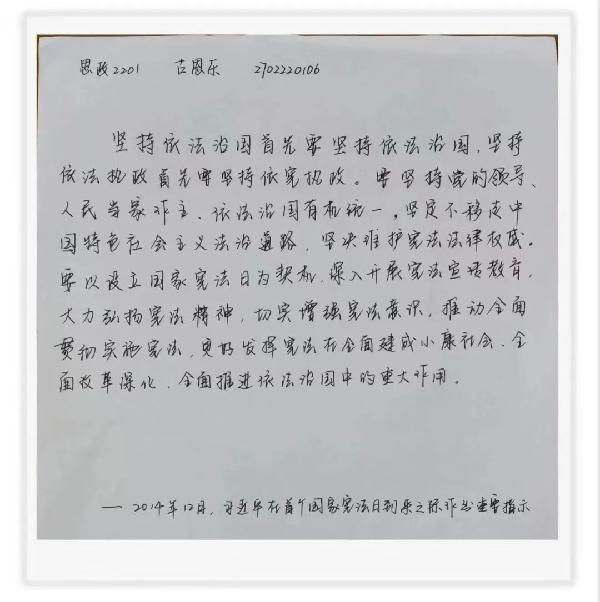 思政2201 古恩乐 2702220106
坚持依法治国首先要坚持依法治国，坚持
依法执政首先要坚持依宪执政。要坚持党的领导、
人民当家作主、依法治国有机统一，坚定不移走中
国特色社会主义法治道路，坚决维护宪法法律权威。
要以设立国家宪法日为契机，深入开展宪法宣传教育，
大力弘扬宪法精神，切实增强宪法意识，推动全面
贯彻实施宪法，更好发挥宪法在全面建成小康社会、全
面改革深化、全面推进依法治国中的重大作用。
—— 2014年12月，习近平在首个国家宪法日到来之际作出重要指示